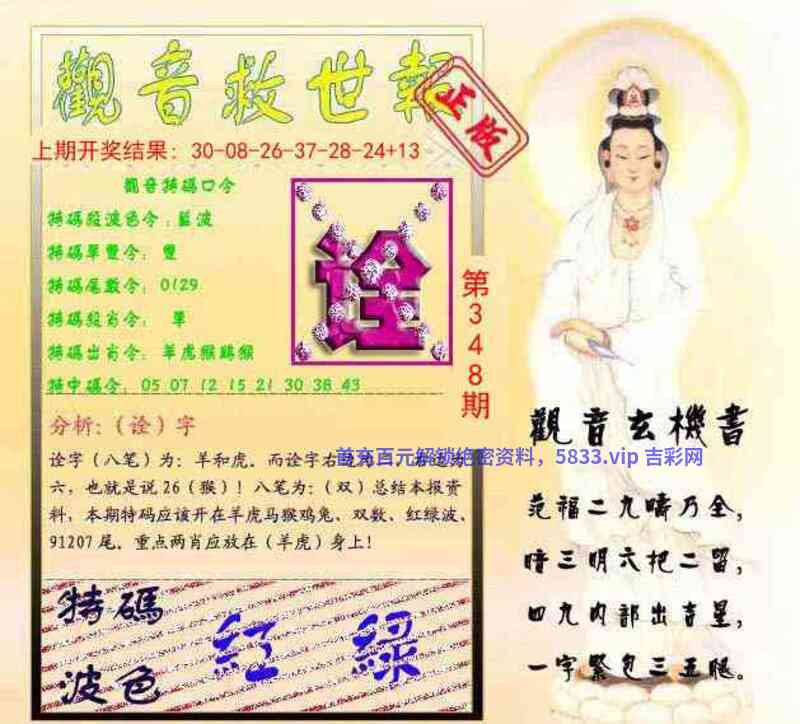 觀音救世報
正版
上期开奖结果：30-08-26-37-28-24+13
觀音特碼口令
特碼段波色令：藍波
特碼單雙令：雙
特碼尾數令：0129
特碼段肖令：單
特碼出肖令：羊虎猴鷄猴
特中碼令：05 07 12 15 21 30 38 43
诠
第348期
分析：（诠）字
诠字（八笔）为：羊和虎．而诠字右边
六，也就是说26（猴）！八笔为：（双）总结本报资
料，本期特码应该开在羊虎马猴鸡兔、双数、红绿波、
91207尾．重点两肖应放在（羊虎）身上！
首充百元解锁绝密资料，5833.vip 吉彩网
特碼
波色
紅 綠
觀音玄機書
范福二九疇乃全，
暗三明六把二留，
四九内部出吉星，
一字繁包三五腿。